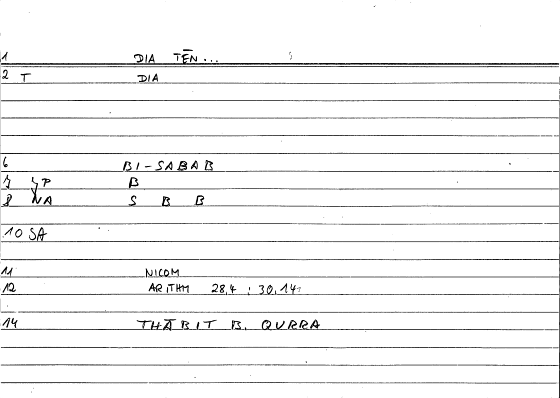 1 DIA TĒN...
2 T DIA
6 BI-SABAB
7 YP B
8 NA S B B
10 SA
11 NICOM
12 ARITHM 28,4 ; 30,14
14 THĀBIT B. QURRA